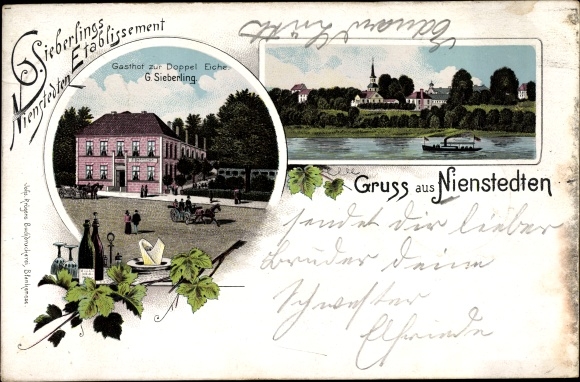 G. Sieberlings
Etablissement
Nienstedten
Gasthof zur Doppel Eiche
G. Sieberling.
Gruss aus Nienstedten
sendet dir lieber
Bruder deine
Schwester
Elfriede